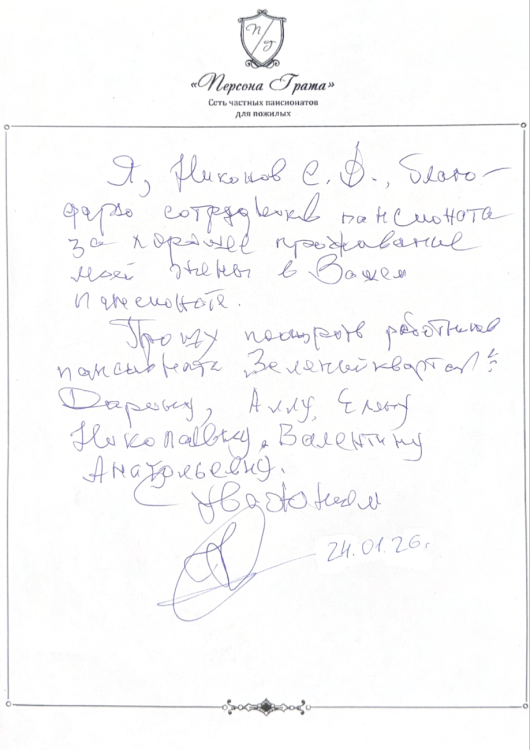 «Персона Грата»
Сеть частных пансионатов
для пожилых
Я, Никонов С. Ф., благо-
дарю сотрудников пансионата
за хорошее проживание
моей жены в Вашем
пансионате.
Прошу поощрить работников
пансионата „Зеленый квартал":
Дарью, Аллу, Елену
Николаевну, Валентину
Анатольевну.
С уважением
24.01.26.